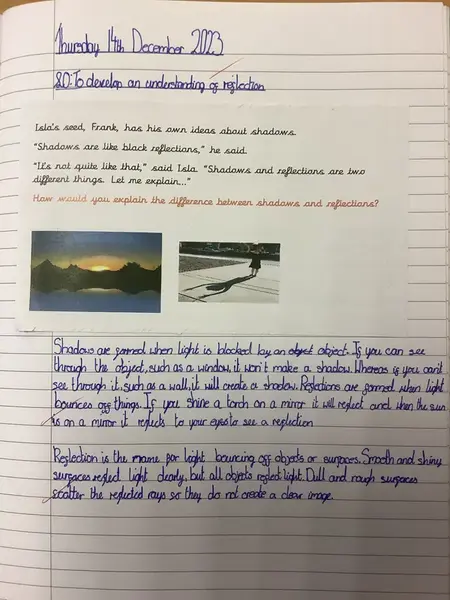 Thursday 14th December 2023
LO: To develop an understanding of reflection
Isla's seed, Frank, has his own ideas about shadows.
"Shadows are like black reflections," he said.
"It's not quite like that," said Isla. "Shadows and reflections are two
different things. Let me explain..."
How would you explain the difference between shadows and reflections?
Shadows are formed when light is blocked by an object object. If you can see
through the object, such as a window, it won't make a shadow. Whereas if you can't
see through it, such as a wall, it will create a shadow. Reflections are formed when light
bounces off things. If you shine a torch on a mirror it will reflect and when the sun
is on a mirror it reflects to your eyes to see a reflection
Reflection is the name for light bouncing off objects or surfaces. Smooth and shiny
surfaces reflect light clearly, but all objects reflect light. Dull and rough surfaces
scatter the reflected rays so they do not create a clear image.